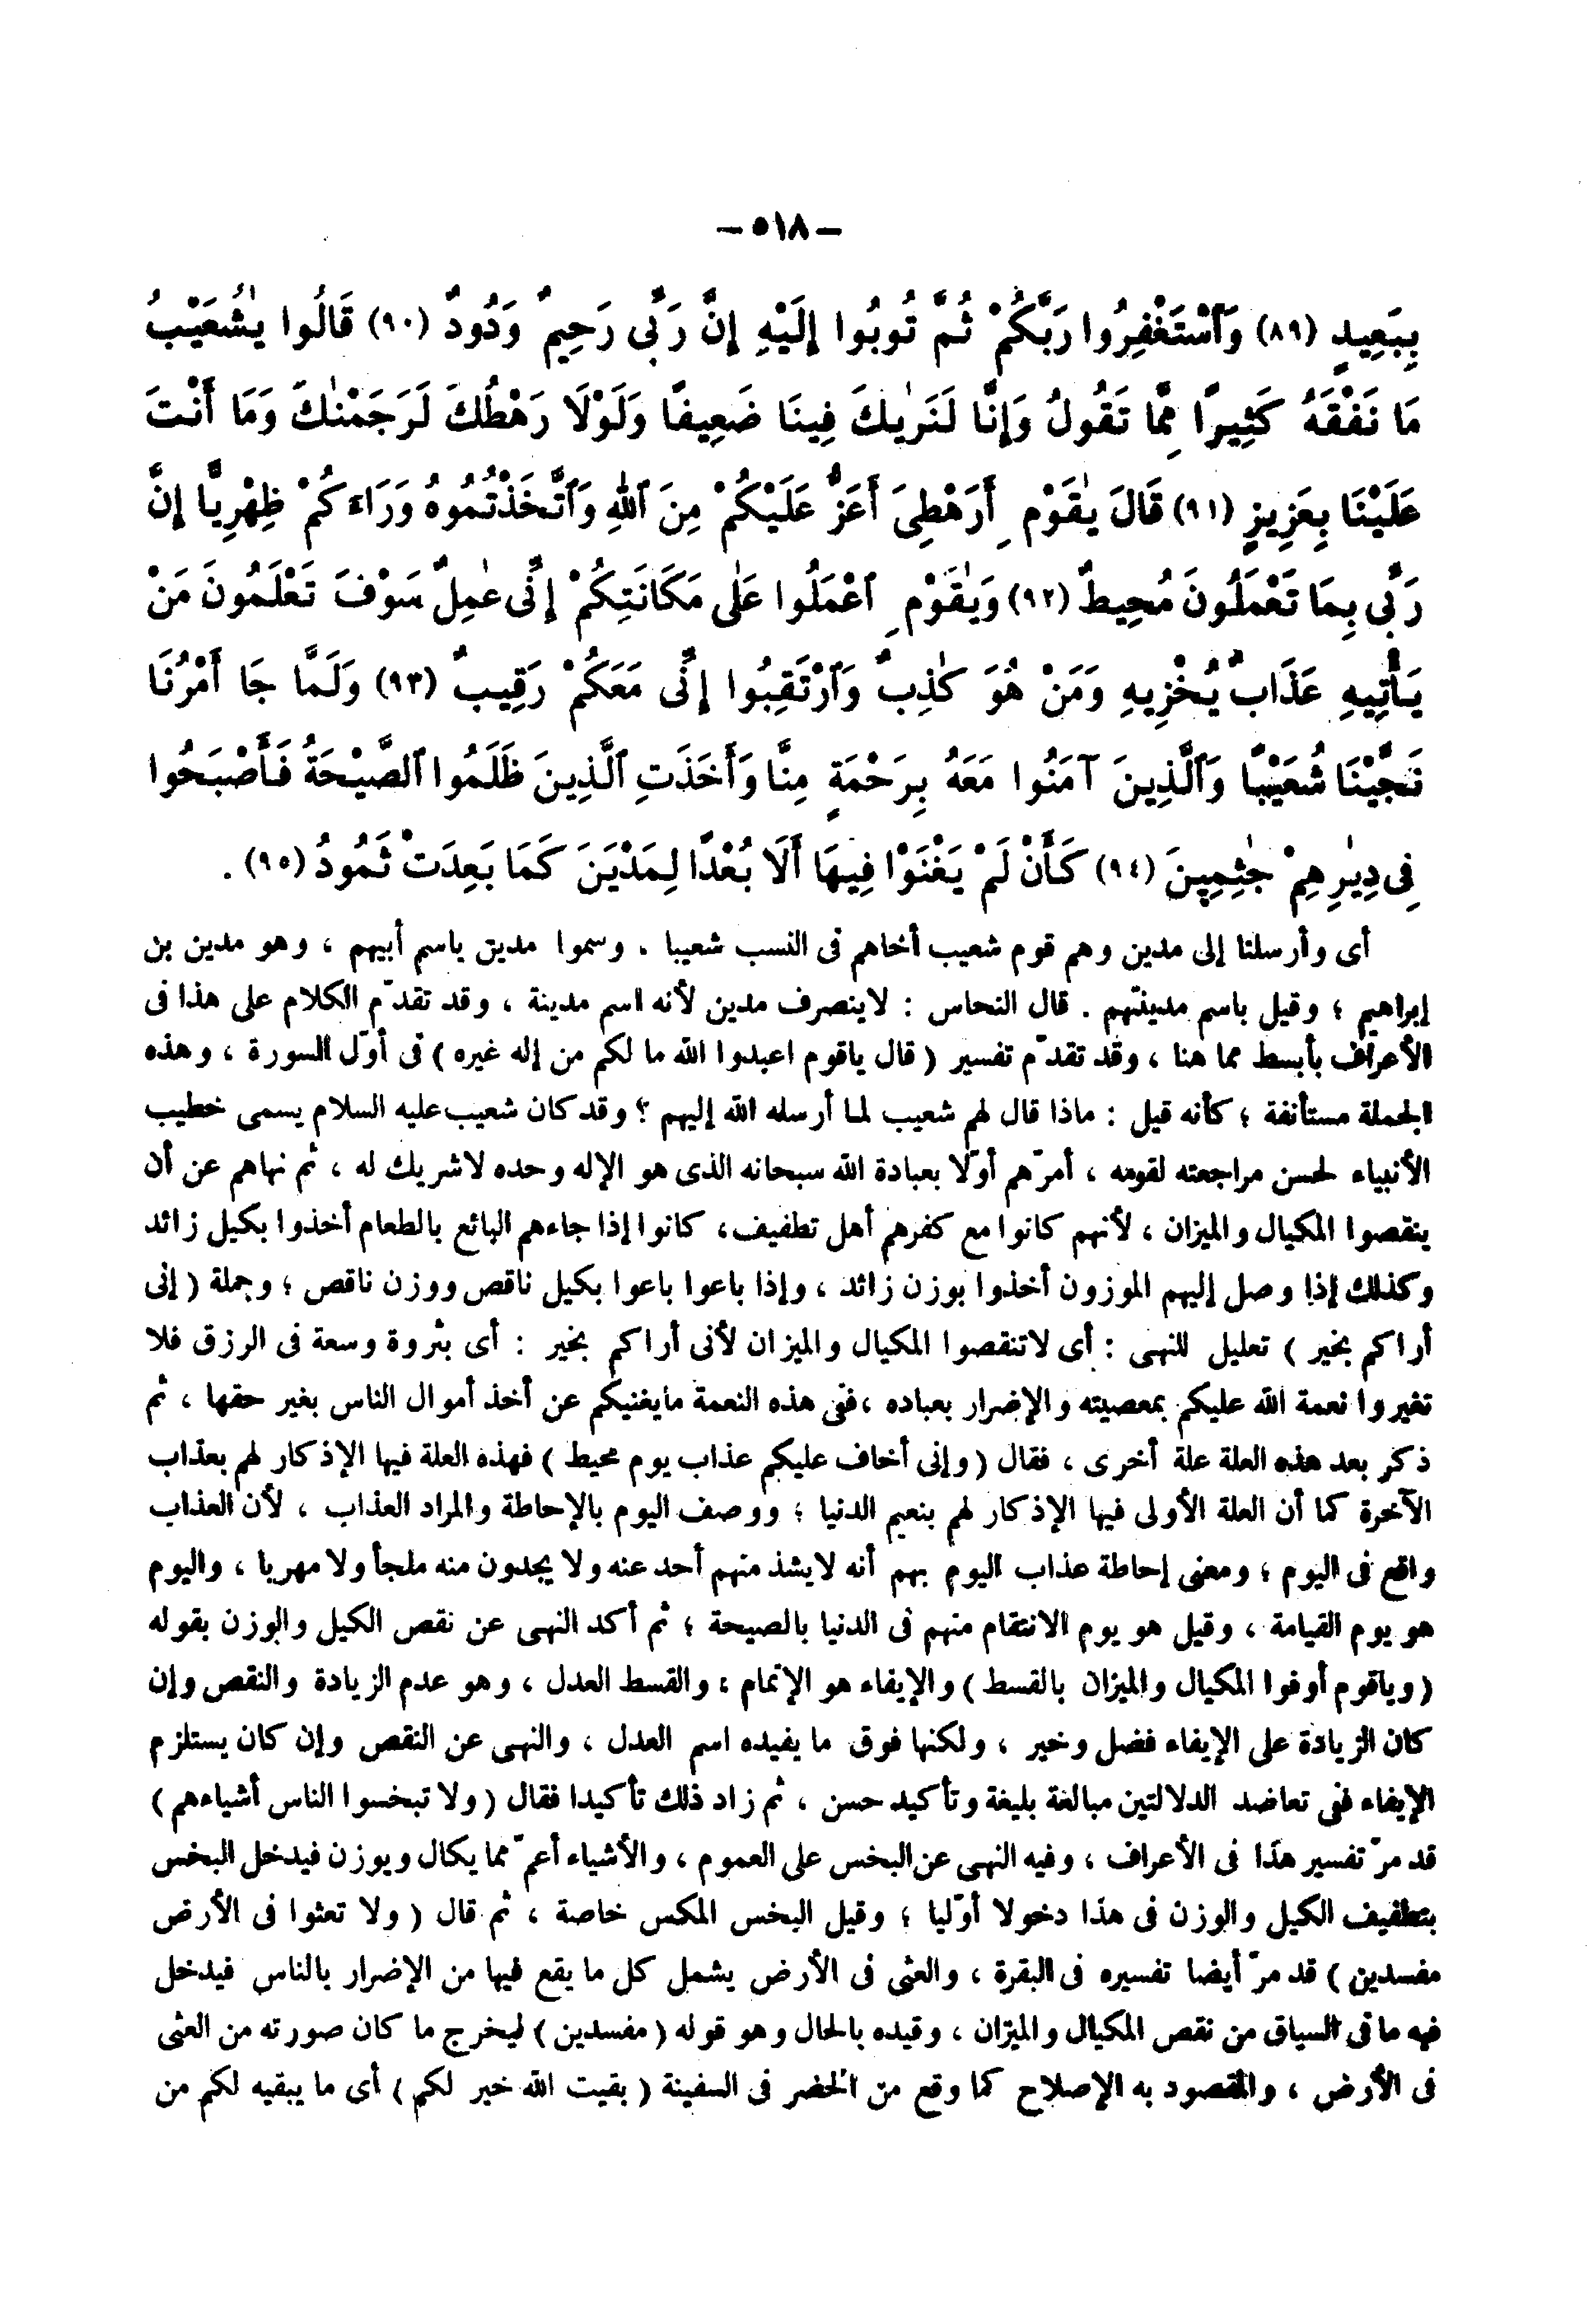 – ٥١٨ –
بِبَعِيدٍ (٨٩) وَٱسْتَغْفِرُوا رَبَّكُمْ ثُمَّ تُوبُوا إِلَيْهِ إِنَّ رَبِّى رَحِيمٌ وَدُودٌ (٩٠) قَالُوا يٰشُعَيْبُ
مَا نَفْقَهُ كَثِيرًا مِّمَّا تَقُولُ وَإِنَّا لَنَرَيٰكَ فِينَا ضَعِيفًا وَلَوْلَا رَهْطُكَ لَرَجَمْنٰكَ وَمَا أَنْتَ
عَلَيْنَا بِعَزِيزٍ (٩١) قَالَ يٰقَوْمِ أَرَهْطِىَ أَعَزُّ عَلَيْكُمْ مِنَ ٱللهِ وَٱتَّخَذْتُمُوهُ وَرَاءَكُمْ ظِهْرِيًّا إِنَّ
رَبِّى بِمَا تَعْمَلُونَ مُحِيطٌ (٩٢) وَيٰقَوْمِ ٱعْمَلُوا عَلٰى مَكَانَتِكُمْ إِنِّى عٰمِلٌ سَوْفَ تَعْلَمُونَ مَنْ
يَأْتِيهِ عَذَابٌ يُخْزِيهِ وَمَنْ هُوَ كٰذِبٌ وَٱرْتَقِبُوا إِنِّى مَعَكُمْ رَقِيبٌ (٩٣) وَلَمَّا جَا أَمْرُنَا
نَجَّيْنَا شُعَيْبًا وَٱلَّذِينَ آمَنُوا مَعَهُ بِرَحْمَةٍ مِنَّا وَأَخَذَتِ ٱلَّذِينَ ظَلَمُوا ٱلصَّيْحَةُ فَأَصْبَحُوا
فِى دِيٰرِهِمْ جٰثِمِينَ (٩٤) كَأَنْ لَمْ يَغْنَوْا فِيهَا أَلَا بُعْدًا لِمَدْيَنَ كَمَا بَعِدَتْ ثَمُودُ (٩٥) .
أى وأرسلنا إلى مدين وهم قوم شعيب أخاهم فى النسب شعيبا . وسموا مدين باسم أبيهم ، وهو مدين بن
إبراهيم ؛ وقيل باسم مدينتهم . قال النحاس : لاينصرف مدين لأنه اسم مدينة ، وقد تقدّم الكلام على هذا فى
الأعراف بأبسط مما هنا ، وقد تقدّم تفسير ( قال ياقوم اعبدوا الله ما لكم من إله غيره ) فى أوّل السورة ، وهذه
الجملة مستأنفة ؛ كأنه قيل : ماذا قال لهم شعيب لما أرسله الله إليهم ؟ وقد كان شعيب عليه السلام يسمى خطيب
الأنبياء لحسن مراجعته لقومه ، أمرّهم أوّلا بعبادة الله سبحانه الذى هو الإله وحده لاشريك له ، ثم نهاهم عن أن
ينقصوا المكيال والميزان ، لأنهم كانوا مع كفرهم أهل تطفيف ، كانوا إذا جاءهم البائع بالطعام أخذوا بكيل زائد
وكذلك إذا وصل إليهم الموزون أخذوا بوزن زائد ، وإذا باعوا باعوا بكيل ناقص ووزن ناقص ؛ وجملة ( إنى
أراكم بخير ) تعليل للنهى : أى لاتنقصوا المكيال والميزان لأنى أراكم بخير : أى بثروة وسعة فى الرزق فلا
تغيروا نعمة الله عليكم بمعصيته والإضرار بعباده ، ففى هذه النعمة مايغنيكم عن أخذ أموال الناس بغير حقها ، ثم
ذكر بعد هذه العلة علة أخرى ، فقال ( وإنى أخاف عليكم عذاب يوم محيط ) فهذه العلة فيها الإذكار لهم بعذاب
الآخرة كما أن العلة الأولى فيها الإذكار لهم بنعيم الدنيا ؛ ووصف اليوم بالإحاطة والمراد العذاب ، لأن العذاب
واقع فى اليوم ؛ ومعنى إحاطة عذاب اليوم بهم أنه لايشذ منهم أحد عنه ولا يجدون منه ملجأ ولا مهربا ، واليوم
هو يوم القيامة ، وقيل هو يوم الانتقام منهم فى الدنيا بالصيحة ؛ ثم أكد النهى عن نقص الكيل والوزن بقوله
( وياقوم أوفوا المكيال والميزان بالقسط ) والإيفاء هو الإتمام ؛ والقسط العدل ، وهو عدم الزيادة والنقص وإن
كان الزيادة على الإيفاء فضل وخير ، ولكنها فوق ما يفيده اسم العدل ، والنهى عن النقص وإن كان يستلزم
الإيفاء ففى تعاضد الدلالتين مبالغة بليغة وتأكيد حسن ، ثم زاد ذلك تأكيدا فقال ( ولا تبخسوا الناس أشياءهم )
قد مرّ تفسير هذا فى الأعراف ، وفيه النهى عن البخس على العموم ، والأشياء أعمّ مما يكال ويوزن فيدخل البخس
بتطفيف الكيل والوزن فى هذا دخولا أوّليا ؛ وقيل البخس المكس خاصة ، ثم قال ( ولا تعثوا فى الأرض
مفسدين ) قد مرّ أيضا تفسيره فى البقرة ، والعثى فى الأرض يشمل كل ما يقع فيها من الإضرار بالناس فيدخل
فيه ما فى السياق من نقص المكيال والميزان ، وقيده بالحال وهو قوله ( مفسدين ) ليخرج ما كان صورته من العثى
فى الأرض ، والمقصود به الإصلاح كما وقع من الخضر فى السفينة ( بقيت الله خير لكم ) أى ما يبقيه لكم من